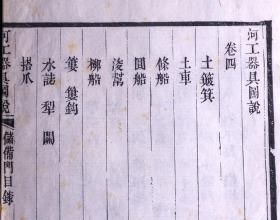 河工器具圖說
卷四
土籮箕
土車
條船
圓船
浚幫
柳船
簍 簍鈎
水誌 犁 閘
搭爪
河工器具圖說
儲備門目錄